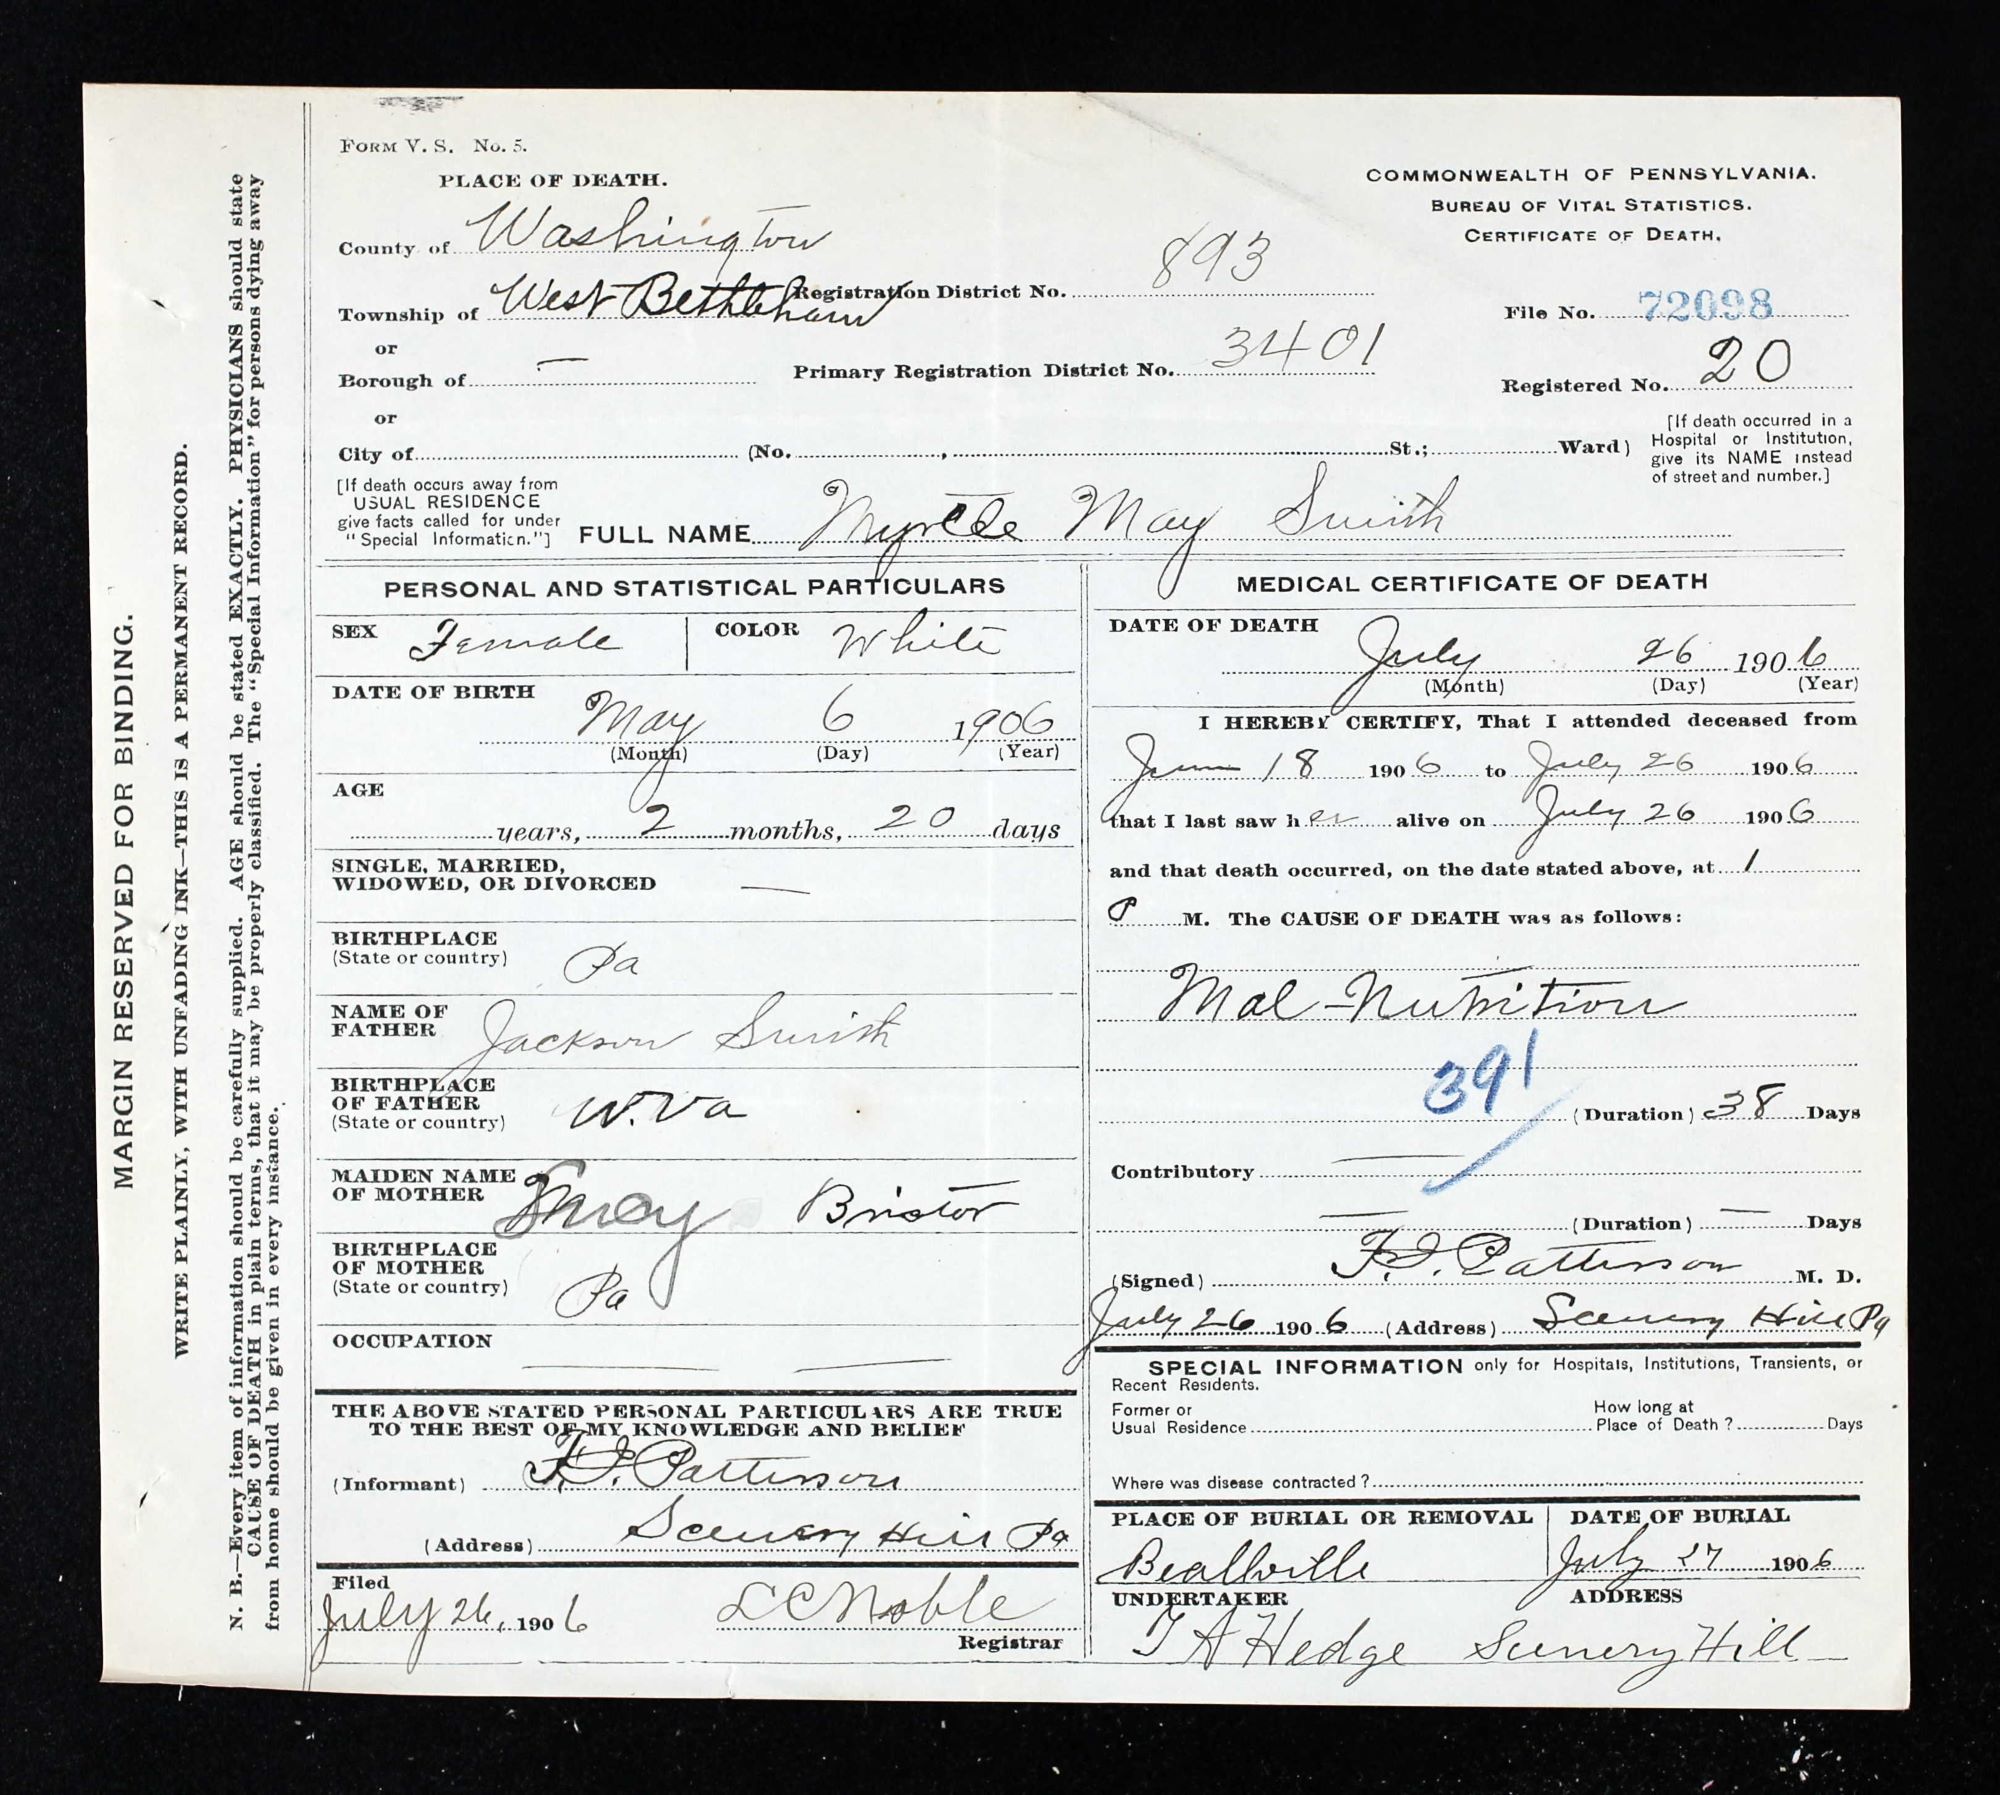 MARGIN RESERVED FOR BINDING.
WRITE PLAINLY, WITH UNFADING INK—THIS IS A PERMANENT RECORD.
N. B.—Every item of information should be carefully supplied. AGE should be stated EXACTLY. PHYSICIANS should state
CAUSE OF DEATH in plain terms, that it may be properly classified. The "Special Information" for persons dying away
from home should be given in every instance.
FORM V. S. No. 5.
PLACE OF DEATH.
COMMONWEALTH OF PENNSYLVANIA.
BUREAU OF VITAL STATISTICS.
CERTIFICATE OF DEATH.
County of Washington
Township of West Bethlehem Registration District No. 893
File No. 72098
or
Borough of — Primary Registration District No. 3401
Registered No. 20
or
City of (No. , St.; Ward)
[If death occurred in a
Hospital or Institution,
give its NAME instead
of street and number.]
[If death occurs away from
USUAL RESIDENCE
give facts called for under
"Special Information."]
FULL NAME Myrtle May Smith
PERSONAL AND STATISTICAL PARTICULARS
SEX Female COLOR White
DATE OF BIRTH
May 6 1906
(Month) (Day) (Year)
AGE
years, 2 months, 20 days
SINGLE, MARRIED,
WIDOWED, OR DIVORCED —
BIRTHPLACE
(State or country) Pa
NAME OF
FATHER Jackson Smith
BIRTHPLACE
OF FATHER
(State or country) W.Va
MAIDEN NAME
OF MOTHER Bristor
BIRTHPLACE
OF MOTHER
(State or country) Pa
OCCUPATION — —
THE ABOVE STATED PERSONAL PARTICULARS ARE TRUE
TO THE BEST OF MY KNOWLEDGE AND BELIEF
(Informant) Patterson
(Address) Scenery Hill Pa
Filed
July 26, 1906 L C Noble
Registrar
MEDICAL CERTIFICATE OF DEATH
DATE OF DEATH
July 26 1906
(Month) (Day) (Year)
I HEREBY CERTIFY, That I attended deceased from
June 18 1906 to July 26 1906
that I last saw her alive on July 26 1906
and that death occurred, on the date stated above, at 1
P M. The CAUSE OF DEATH was as follows:
Mal-Nutrition
391
(Duration) 38 Days
Contributory —
— (Duration) — Days
(Signed) Patterson M. D.
July 26 1906 (Address) Scenery Hill Pa
SPECIAL INFORMATION only for Hospitals, Institutions, Transients, or
Recent Residents.
Former or
Usual Residence
How long at
Place of Death? Days
Where was disease contracted?
PLACE OF BURIAL OR REMOVAL DATE OF BURIAL
Beallville July 27 1906
UNDERTAKER ADDRESS
T A Hedge Scenery Hill